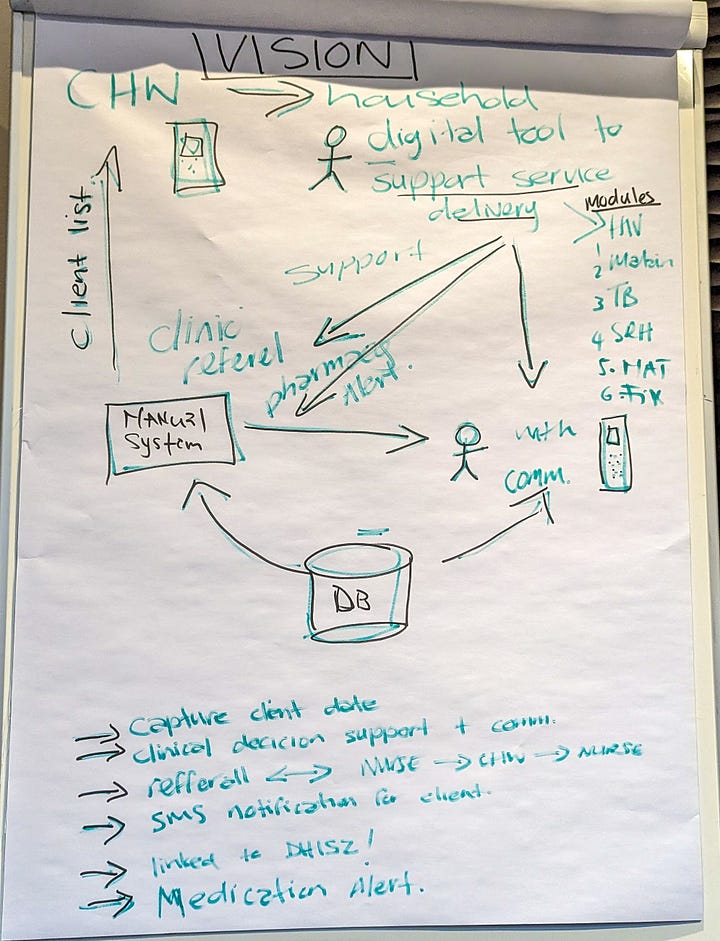 VISION
CHW → household
digital tool to
support service
delivery
Modules
HIV
1
2 Matern
3 TB
4 SRH
5. MAT
6.
Client list
support
Clinic
referel
pharmacy
Alert.
MANUal
System
with
comm.
DB
→ Capture client date
→ clinical decicion support + comm.
→ refferall ↔ NURSE → CHW → NURSE
→ SMS notification for client.
→ linked to DHIS2!
→ Medication Alert.